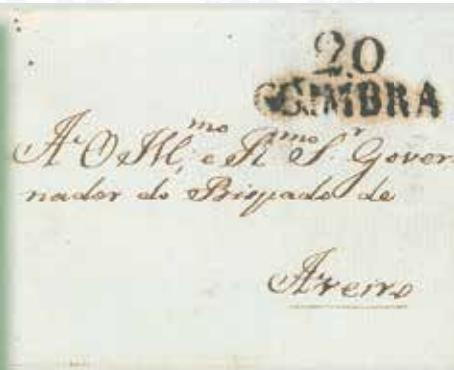 20
COIMBRA
Ao Illmo e Rmo Sr Gover
nador do Bispado de
Aveiro